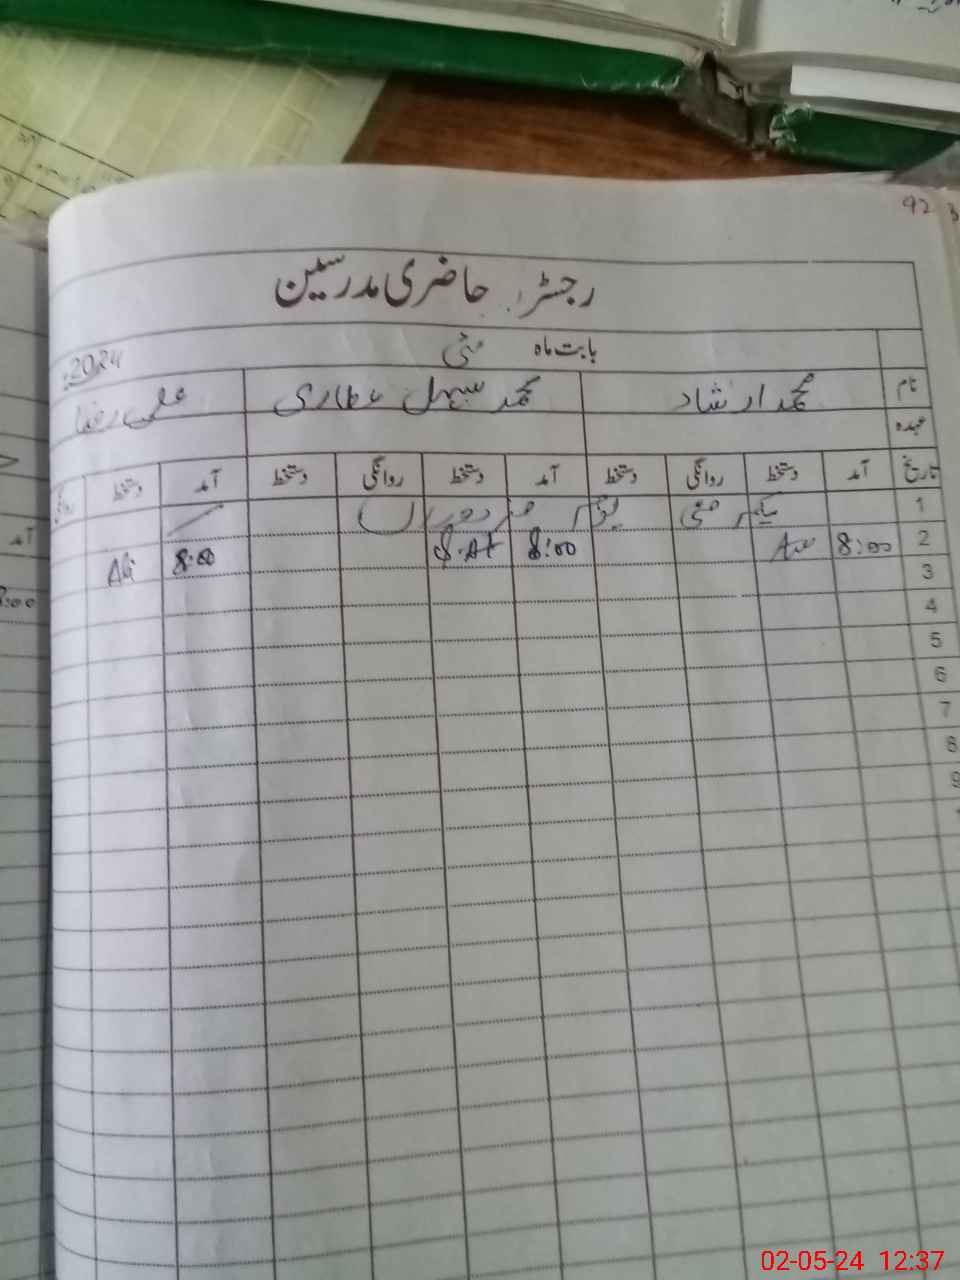 92
رجسٹر حاضری مدرسین
بابت ماہ مئی 2024
نام محمد ارشاد محمد سہیل عطاری علی رضا
عہدہ
تاریخ آمد دستخط روانگی دستخط آمد دستخط روانگی دستخط آمد دستخط روانگی
1 یکم مئی یوم مزدوراں
2 8:00 8:00 S.At 8:00 Ali
3
4
5
6
7
8
9
آمد
8:00
02-05-24 12:37